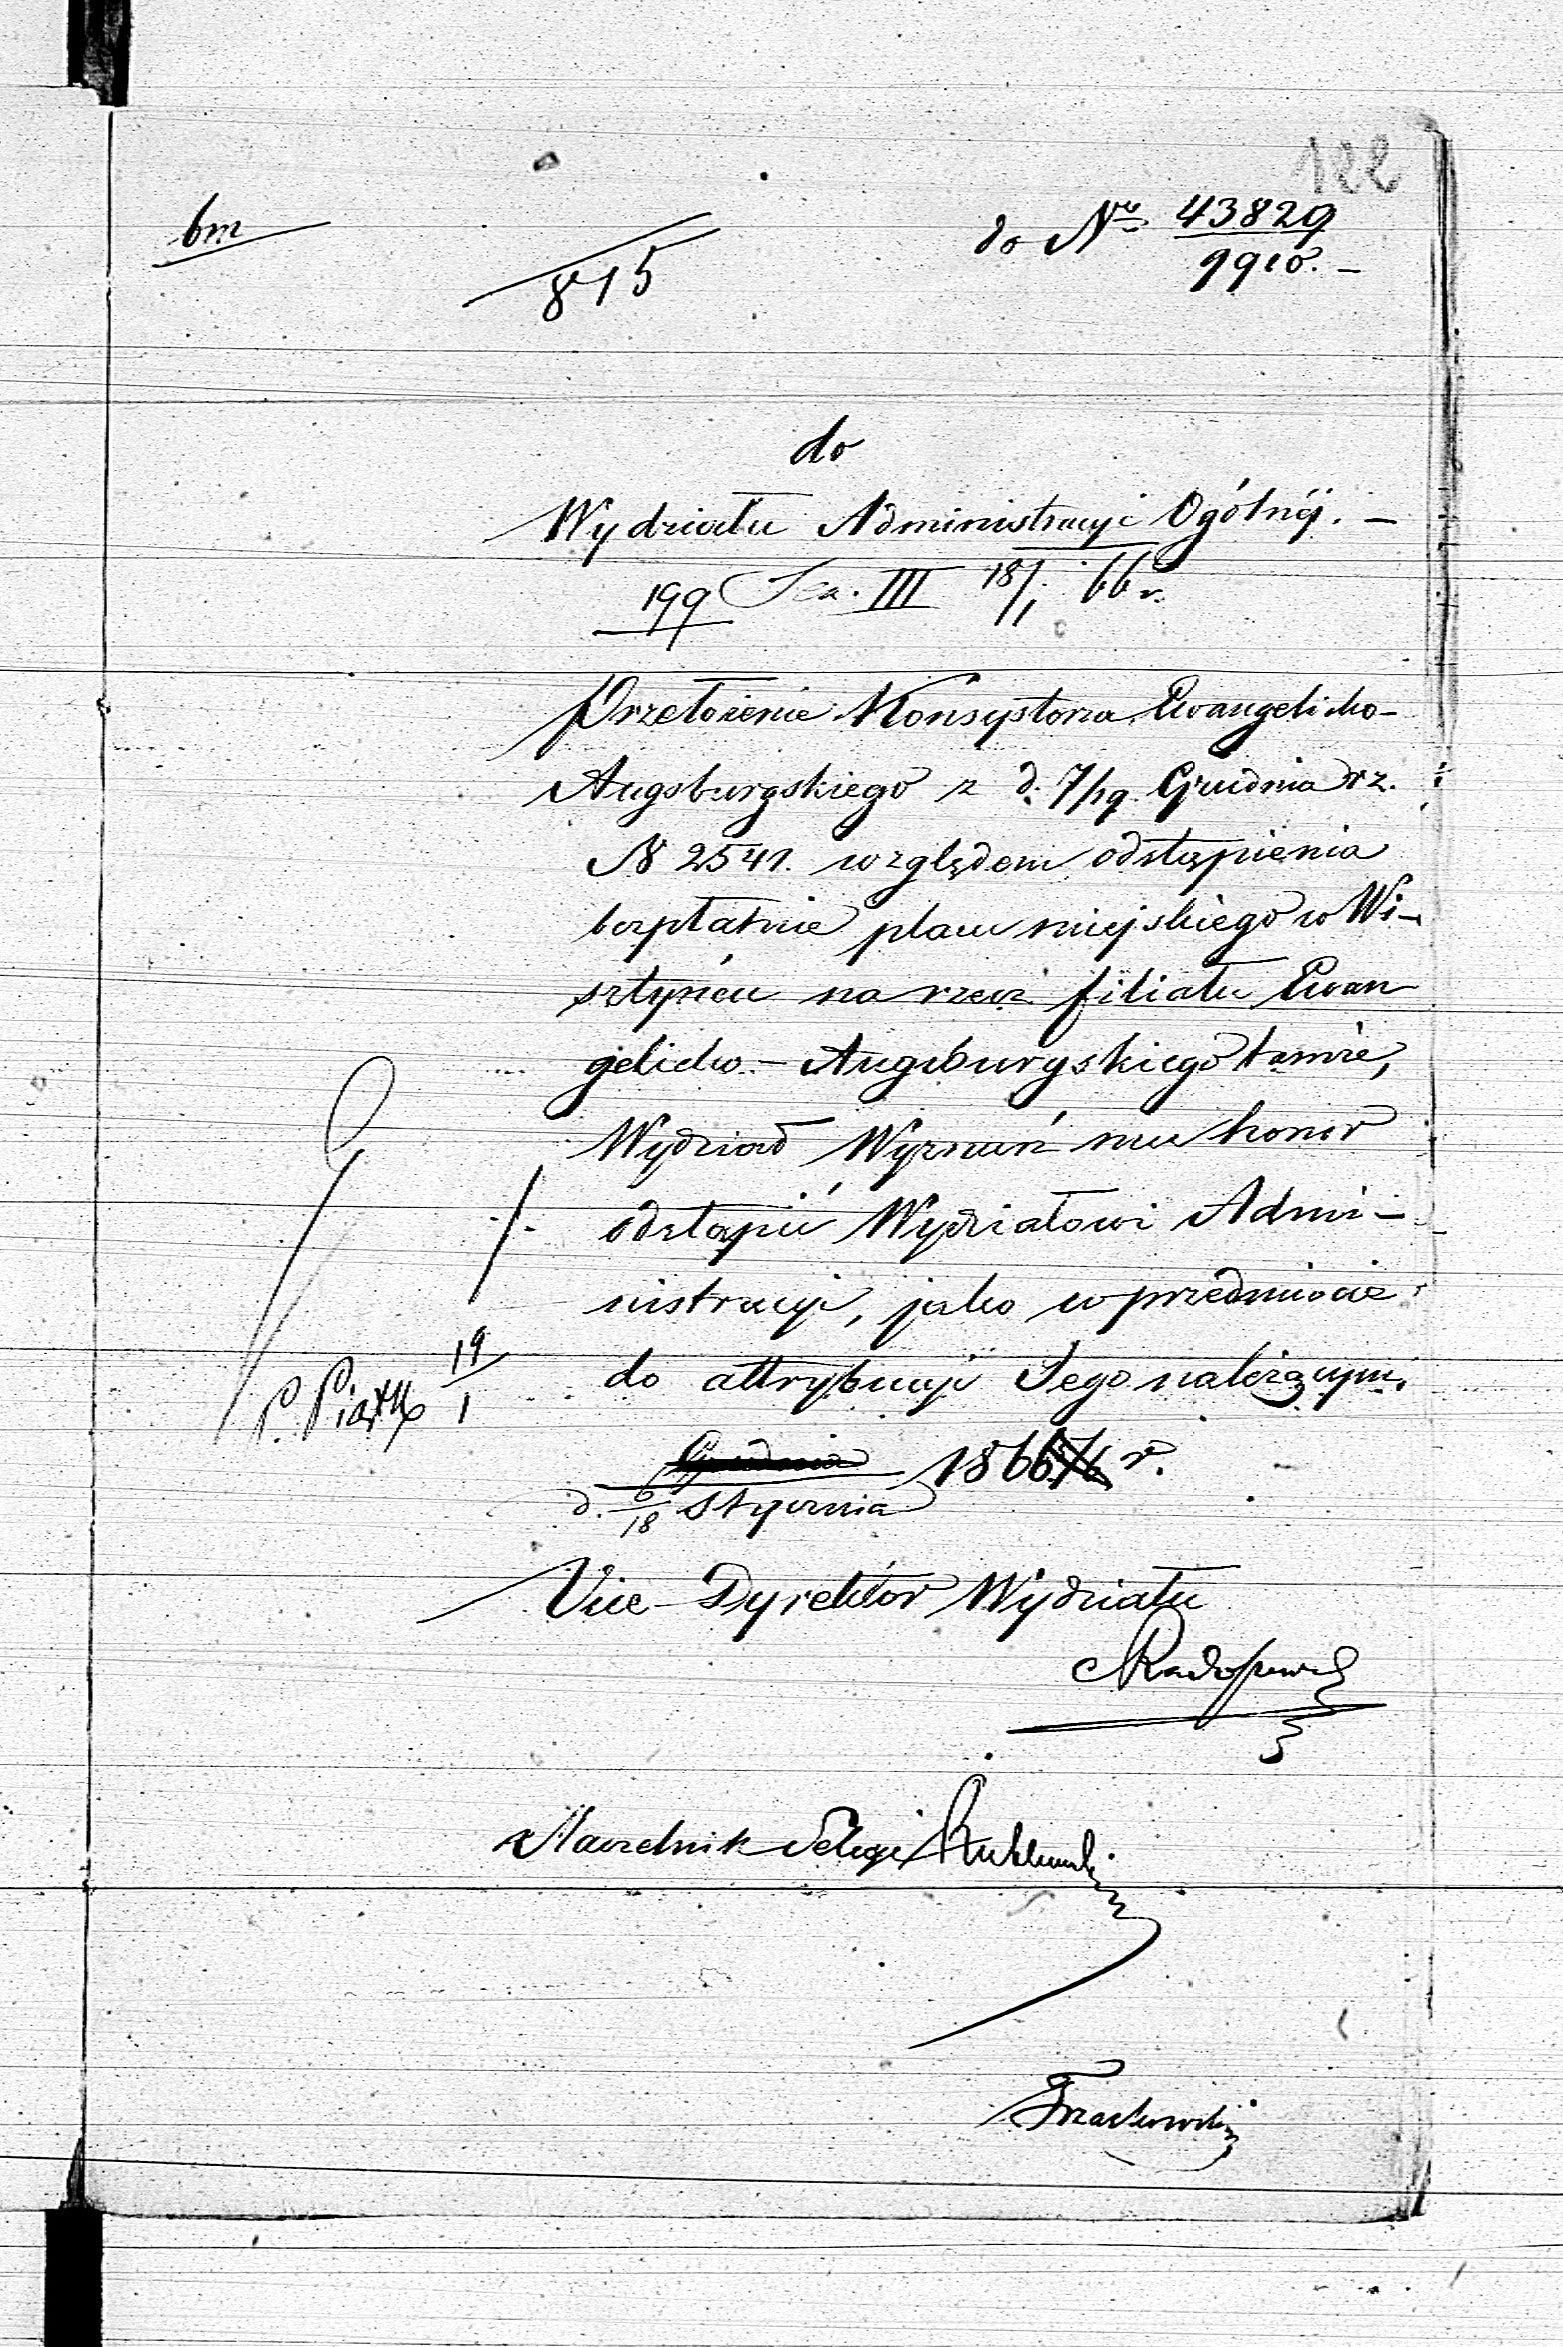 122
bm
815
do Nru 43829
9910. –
do
Wydziału Administracyi Ogólnéj. –
199 Sek. III 18/1 66 r.
Przełożenie Konsystorza Ewangelicko-
Augsburgskiego z d. 7/19 Grudnia rz.
N 2541. względem odstąpienia
bezpłatnie placu miejskiego w Wi-
sztyńcu na rzecz filiału Ewan
gelicko - Augsburgskiego tamże,
Wydział Wyznań ma honor
odstąpić Wydziałowi Admi-
nistracyi, jako w przedmiocie
do attrybucyi Jego należącym.
P. Piątk 19/1
Grudnia 1866 r.
d. 6/18 Stycznia
Vice-Dyrektor Wydziału
Naczelnik Sekcyi